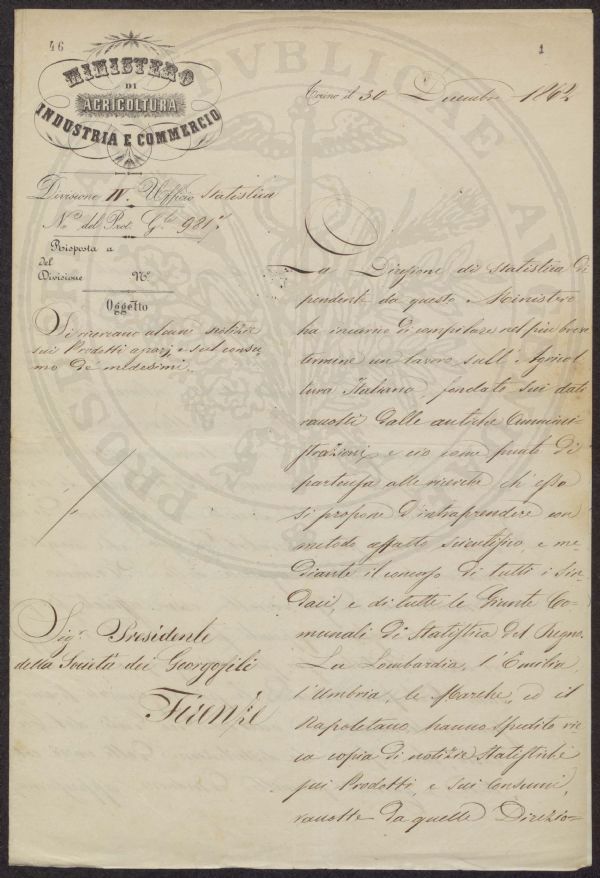 46
1
MINISTERO
DI
AGRICOLTURA
INDUSTRIA E COMMERCIO
Torino il 30 Dicembre 1862
Divisione IV Ufficio Statistica
N.o del Prot. G.le 981
Risposta a
del
Divisione N.o
Oggetto
Si ricercano alcune notizie
sui Prodotti agrari e sul consu-
mo de' medesimi.
La Direzione di Statistica di
pendente da questo Ministero
ha incarico di compilare nel più breve
termine un lavoro sull' Agricol
tura Italiana, fondato sui dati
raccolti dalle antiche Ammini-
strazioni, e ciò come punto di
partenza alle ricerche ch' essa
si propone d'intraprendere con
metodo affatto scientifico, e me
diante il concorso di tutti i Sin-
daci, e di tutte le Giunte Co-
munali di Statistica del Regno.
La Lombardia, l'Emilia,
l'Umbria, le Marche, ed il
Napoletano, hanno spedito ric
ca copia di notizie Statistiche
sui Prodotti, e sui Consumi,
raccolte da quelle Direzio-
Sig.r Presidente
della Società dei Georgofili
Firenze
PROSPERITATI PVBLICAE AVGENDAE